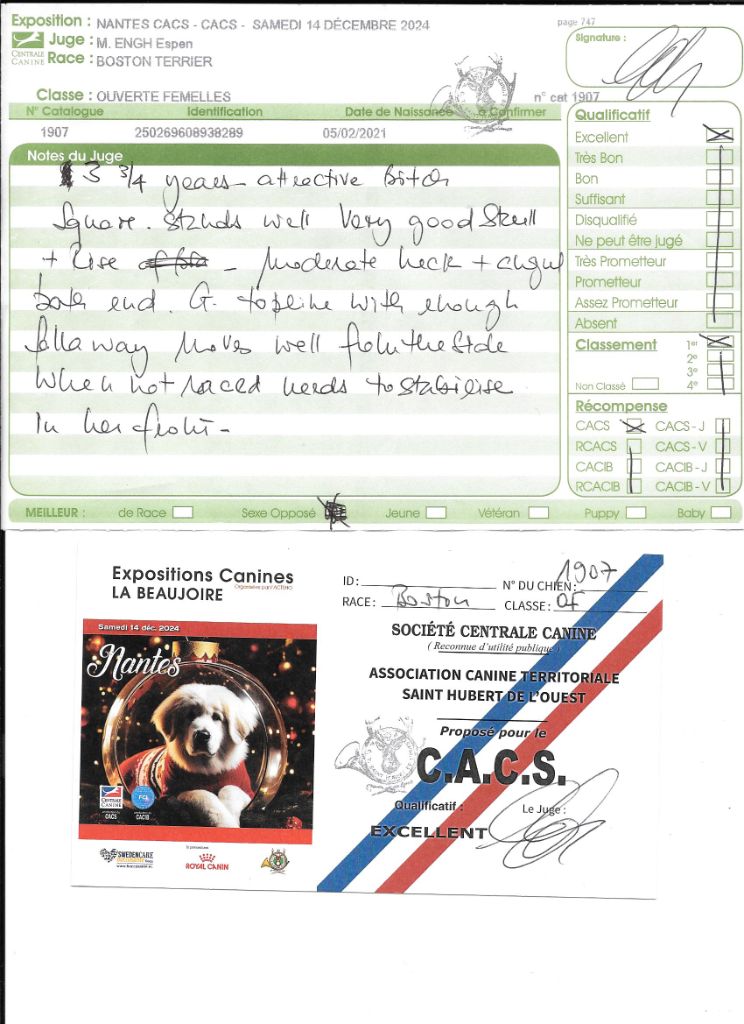 Exposition : NANTES CACS - CACS - SAMEDI 14 DÉCEMBRE 2024
page 747
CENTRALE CANINE
Juge : M. ENGH Espen
Race : BOSTON TERRIER
Signature :
Classe : OUVERTE FEMELLES
n° cat 1907
N° Catalogue Identification Date de Naissance à Confirmer
1907 250269608938289 05/02/2021
Notes du Juge
3 3/4 years attractive Bitch
Square. Stands well Very good Skull
+ - Moderate neck + angul
both end. G. topline with enough
fallaway Moves well from the Side
When not raced needs to stabilise
In her front -
Qualificatif
Excellent
Très Bon
Bon
Suffisant
Disqualifié
Ne peut être jugé
Très Prometteur
Prometteur
Assez Prometteur
Absent
Classement 1er
2e
3e
Non Classé 4e
Récompense
CACS CACS - J
RCACS CACS - V
CACIB CACIB - J
RCACIB CACIB - V
MEILLEUR : de Race Sexe Opposé Jeune Vétéran Puppy Baby
Expositions Canines
LA BEAUJOIRE
Samedi 14 déc. 2024
Nantes
CENTRALE CANINE
CACS CACIB
SWEDENCARE
ROYAL CANIN
ID : N° DU CHIEN : 1907
RACE : Boston CLASSE : OF
SOCIÉTÉ CENTRALE CANINE
( Reconnue d'utilité publique )
ASSOCIATION CANINE TERRITORIALE
SAINT HUBERT DE L'OUEST
Proposé pour le
C.A.C.S.
Qualificatif : Le Juge :
EXCELLENT